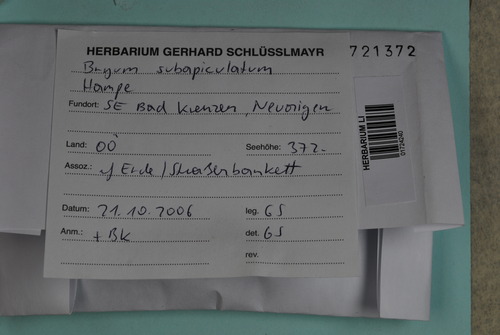 HERBARIUM GERHARD SCHLÜSSLMAYR
721372
Bryum subapiculatum
Hampe
Fundort: SE Bad Kreuzen, Nevorigen
Land: OÖ
Seehöhe: 372.-
Assoz.: f Erde / Straßenbankett
Datum: 21.10.2006
leg. GS
Anm.: + BK
det. GS
rev.
HERBARIUM LI
01724240